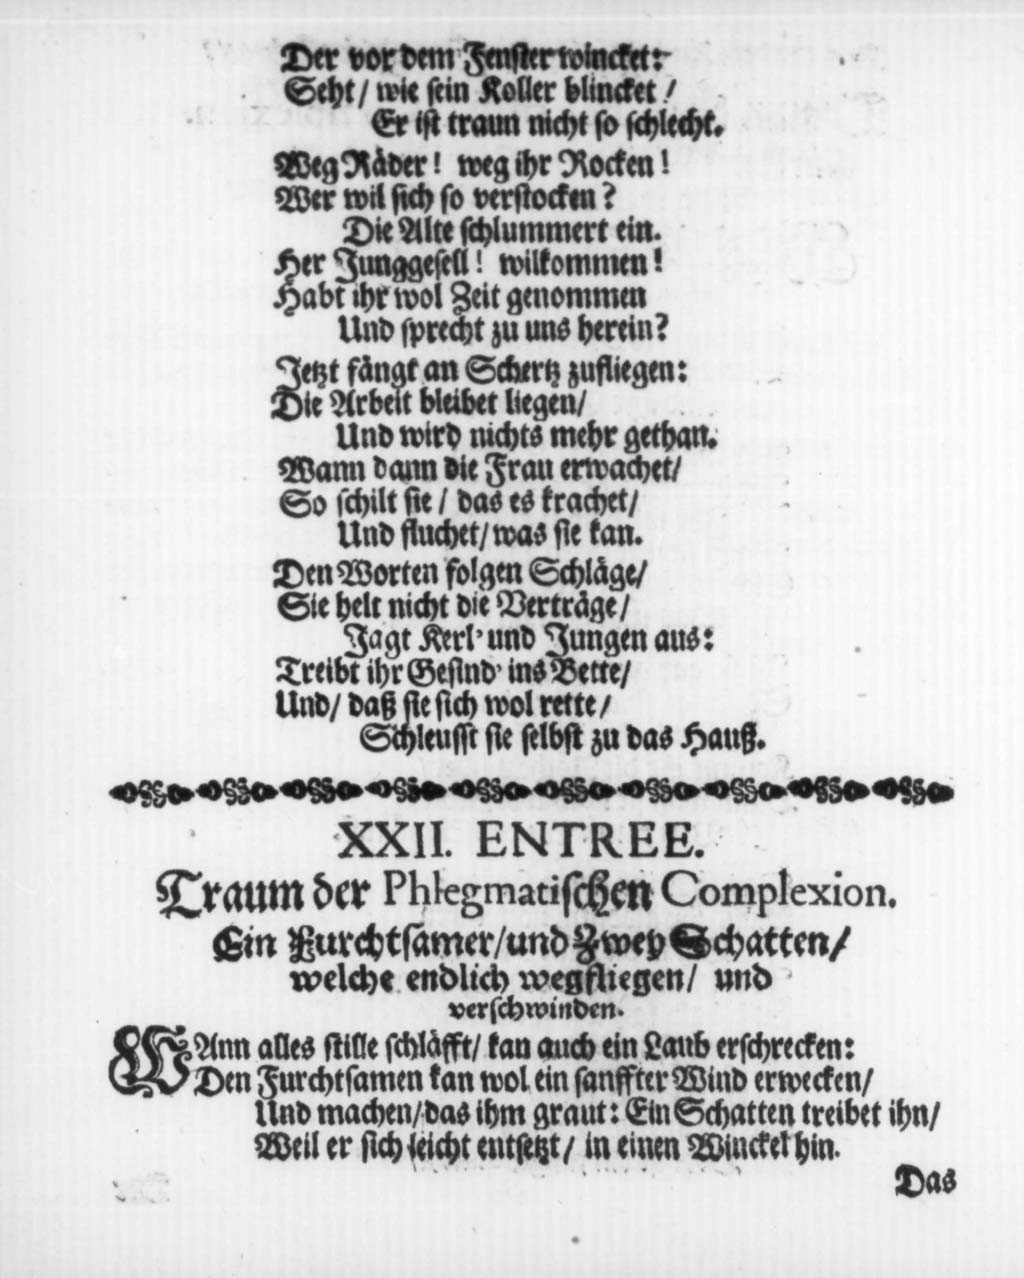 Der vor dem Fenster wincket:
Seht/ wie sein Koller blincket/
Er ist traun nicht so schlecht.
Weg Räder! weg ihr Rocken!
Wer wil sich so verstocken?
Die Alte schlummert ein.
Her Junggesell! wilkommen!
Habt ihr wol Zeit genommen
Und sprecht zu uns herein?
Jetzt fängt an Schertz zufliegen:
Die Arbeit bleibet liegen/
Und wird nichts mehr gethan.
Wann dann die Frau erwachet/
So schilt sie/ das es krachet/
Und fluchet/ was sie kan.
Den Worten folgen Schläge/
Sie helt nicht die Verträge/
Jagt Kerl' und Jungen aus:
Treibt ihr Gesind' ins Bette/
Und/ daß sie sich wol rette/
Schleusst sie selbst zu das Hauß.
XXII. ENTREE.
Traum der Phlegmatischen Complexion.
Ein Furchtsamer/ und Zwey Schatten/
welche endlich wegfliegen/ und
verschwinden.
WAnn alles stille schläfft/ kan auch ein Laub erschrecken:
Den Furchtsamen kan wol ein sanffter Wind erwecken/
Und machen/ das ihm graut: Ein Schatten treibet ihn/
Weil er sich leicht entsetzt/ in einen Winckel hin.
Das